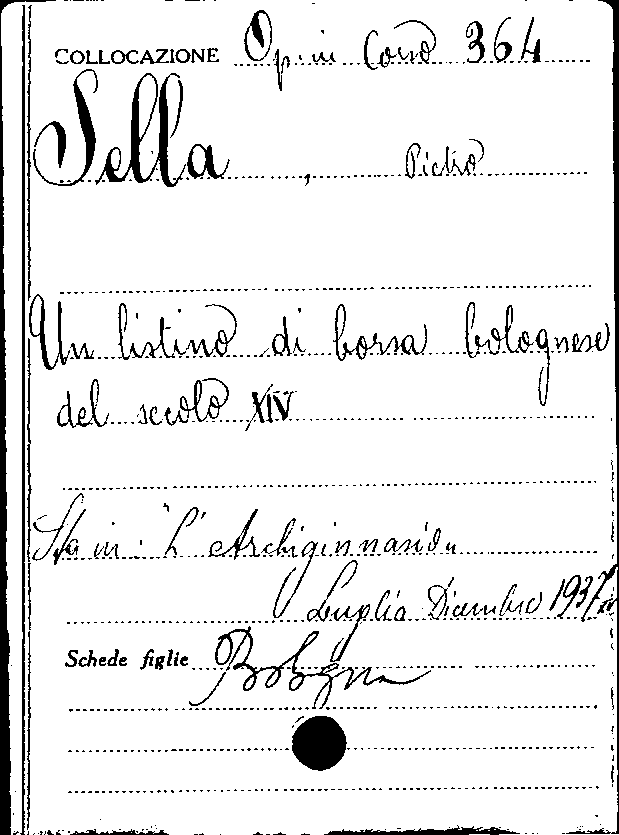 COLLOCAZIONE Op.ni Corso 364
Sella, Pietro
Un listino di borsa bolognese
del secolo XIV
Sta in: "L'Archiginnasio"
Luglio Dicembre 1937
Schede figlie Bologna